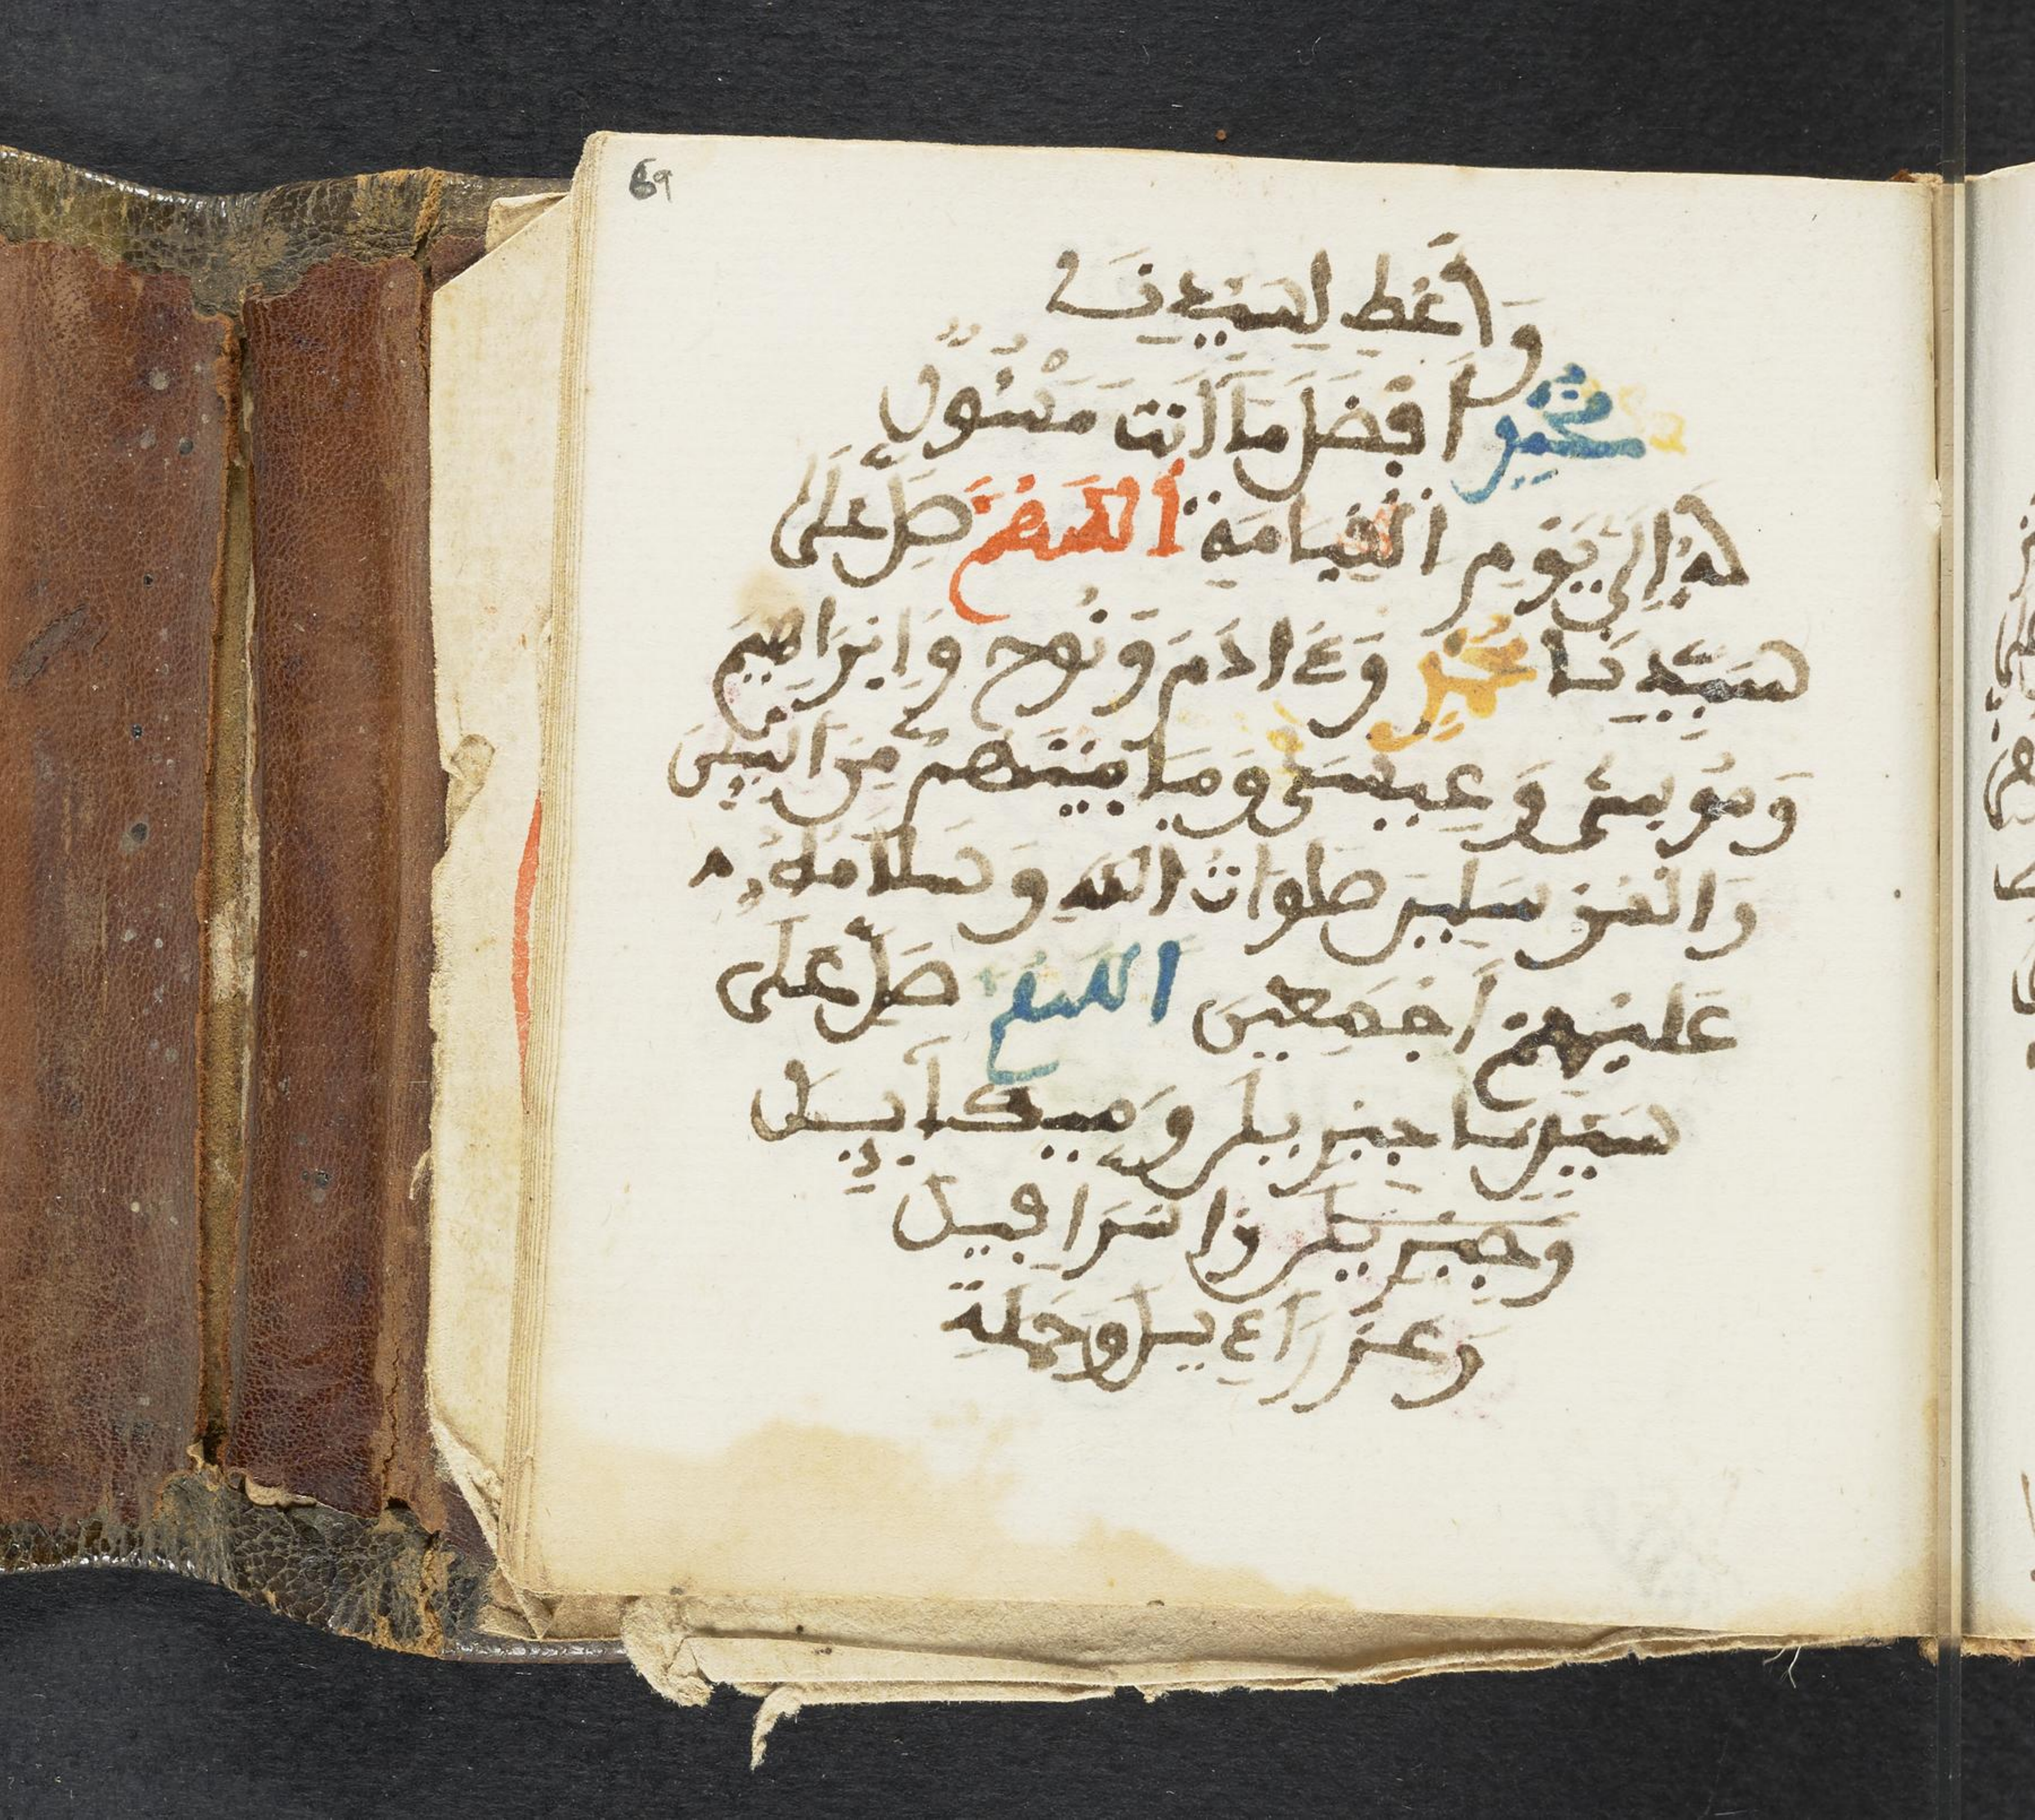 69
وَأَعْطِ لِسَيِّدِنَا
مُحَمَّدٍ أَفْضَلَ مَا أَنْتَ مَسْئُولٌ
لَهُ إِلَى يَوْمِ الْقِيَامَةِ اَللَّهُمَّ صَلِّ عَلَى
سَيِّدِنَا مُحَمَّدٍ وَءَادَمَ وَنُوحٍ وَإِبْرَاهِيمَ
وَمُوسَى وَعِيسَى وَمَا بَيْنَهُمْ مِنَ النَّبِيِّينَ
وَالْمُرْسَلِينَ صَلَوَاتُ اللَّهِ وَسَلَامُهُ
عَلَيْهِمْ أَجْمَعِينَ اَللَّهُمَّ صَلِّ عَلَى
سَيِّدِنَا جِبْرِيلَ وَمِيكَآئِيلَ
وَجِبْرِيلَ وَإِسْرَافِيلَ
وَعَزْرَاءِيلَ وَحَمَلَةِ